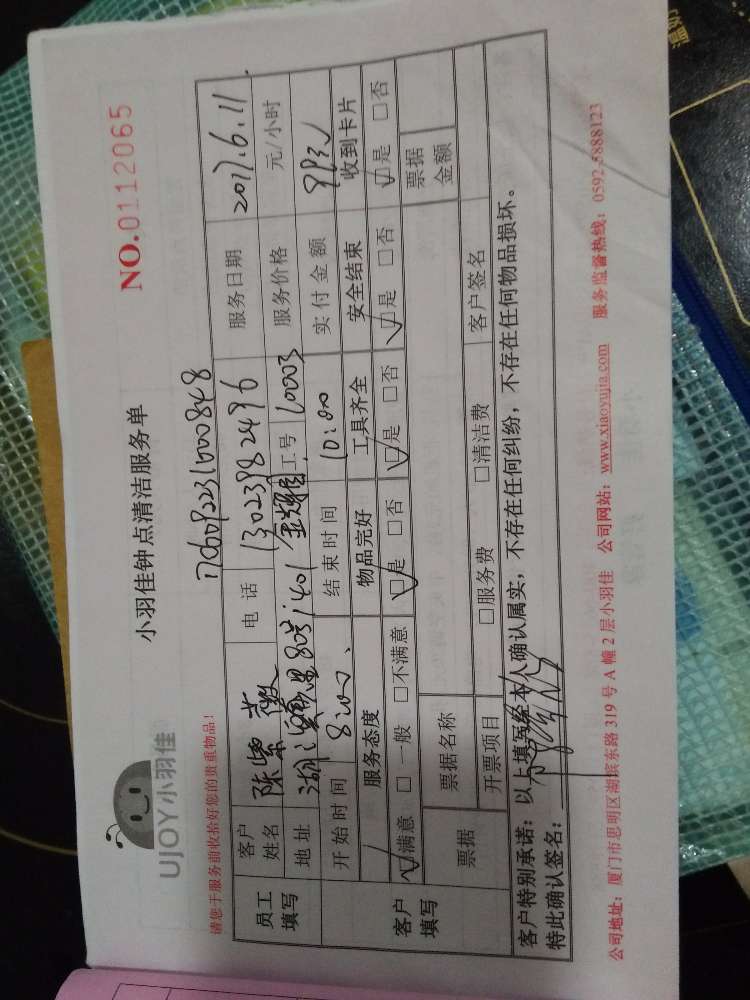 UJOY小羽佳
小羽佳钟点清洁服务单
NO.0112065
请您于服务前收拾好您的贵重物品!
员工填写
客户姓名 陈紫薇 电话 13023982496 服务日期 2017.6.11
地址 80号1401 工号 10003 服务价格 元/小时
开始时间 8:00 结束时间 10:00 实付金额
客户填写
服务态度 物品完好 工具齐全 安全结束 收到卡片
☑满意 □一般 □不满意 ☑是 □否 ☑是 □否 ☑是 □否 ☑是 □否
票据 票据名称 票据金额
开票项目 □服务费 □清洁费 客户签名
客户特别承诺:以上填写经本人确认属实,不存在任何纠纷,不存在任何物品损坏。
特此确认签名:
公司地址:厦门市思明区湖滨东路 319 号 A 幢 2 层小羽佳 公司网站:www.xiaoyujia.com 服务监督热线:0592-5888123